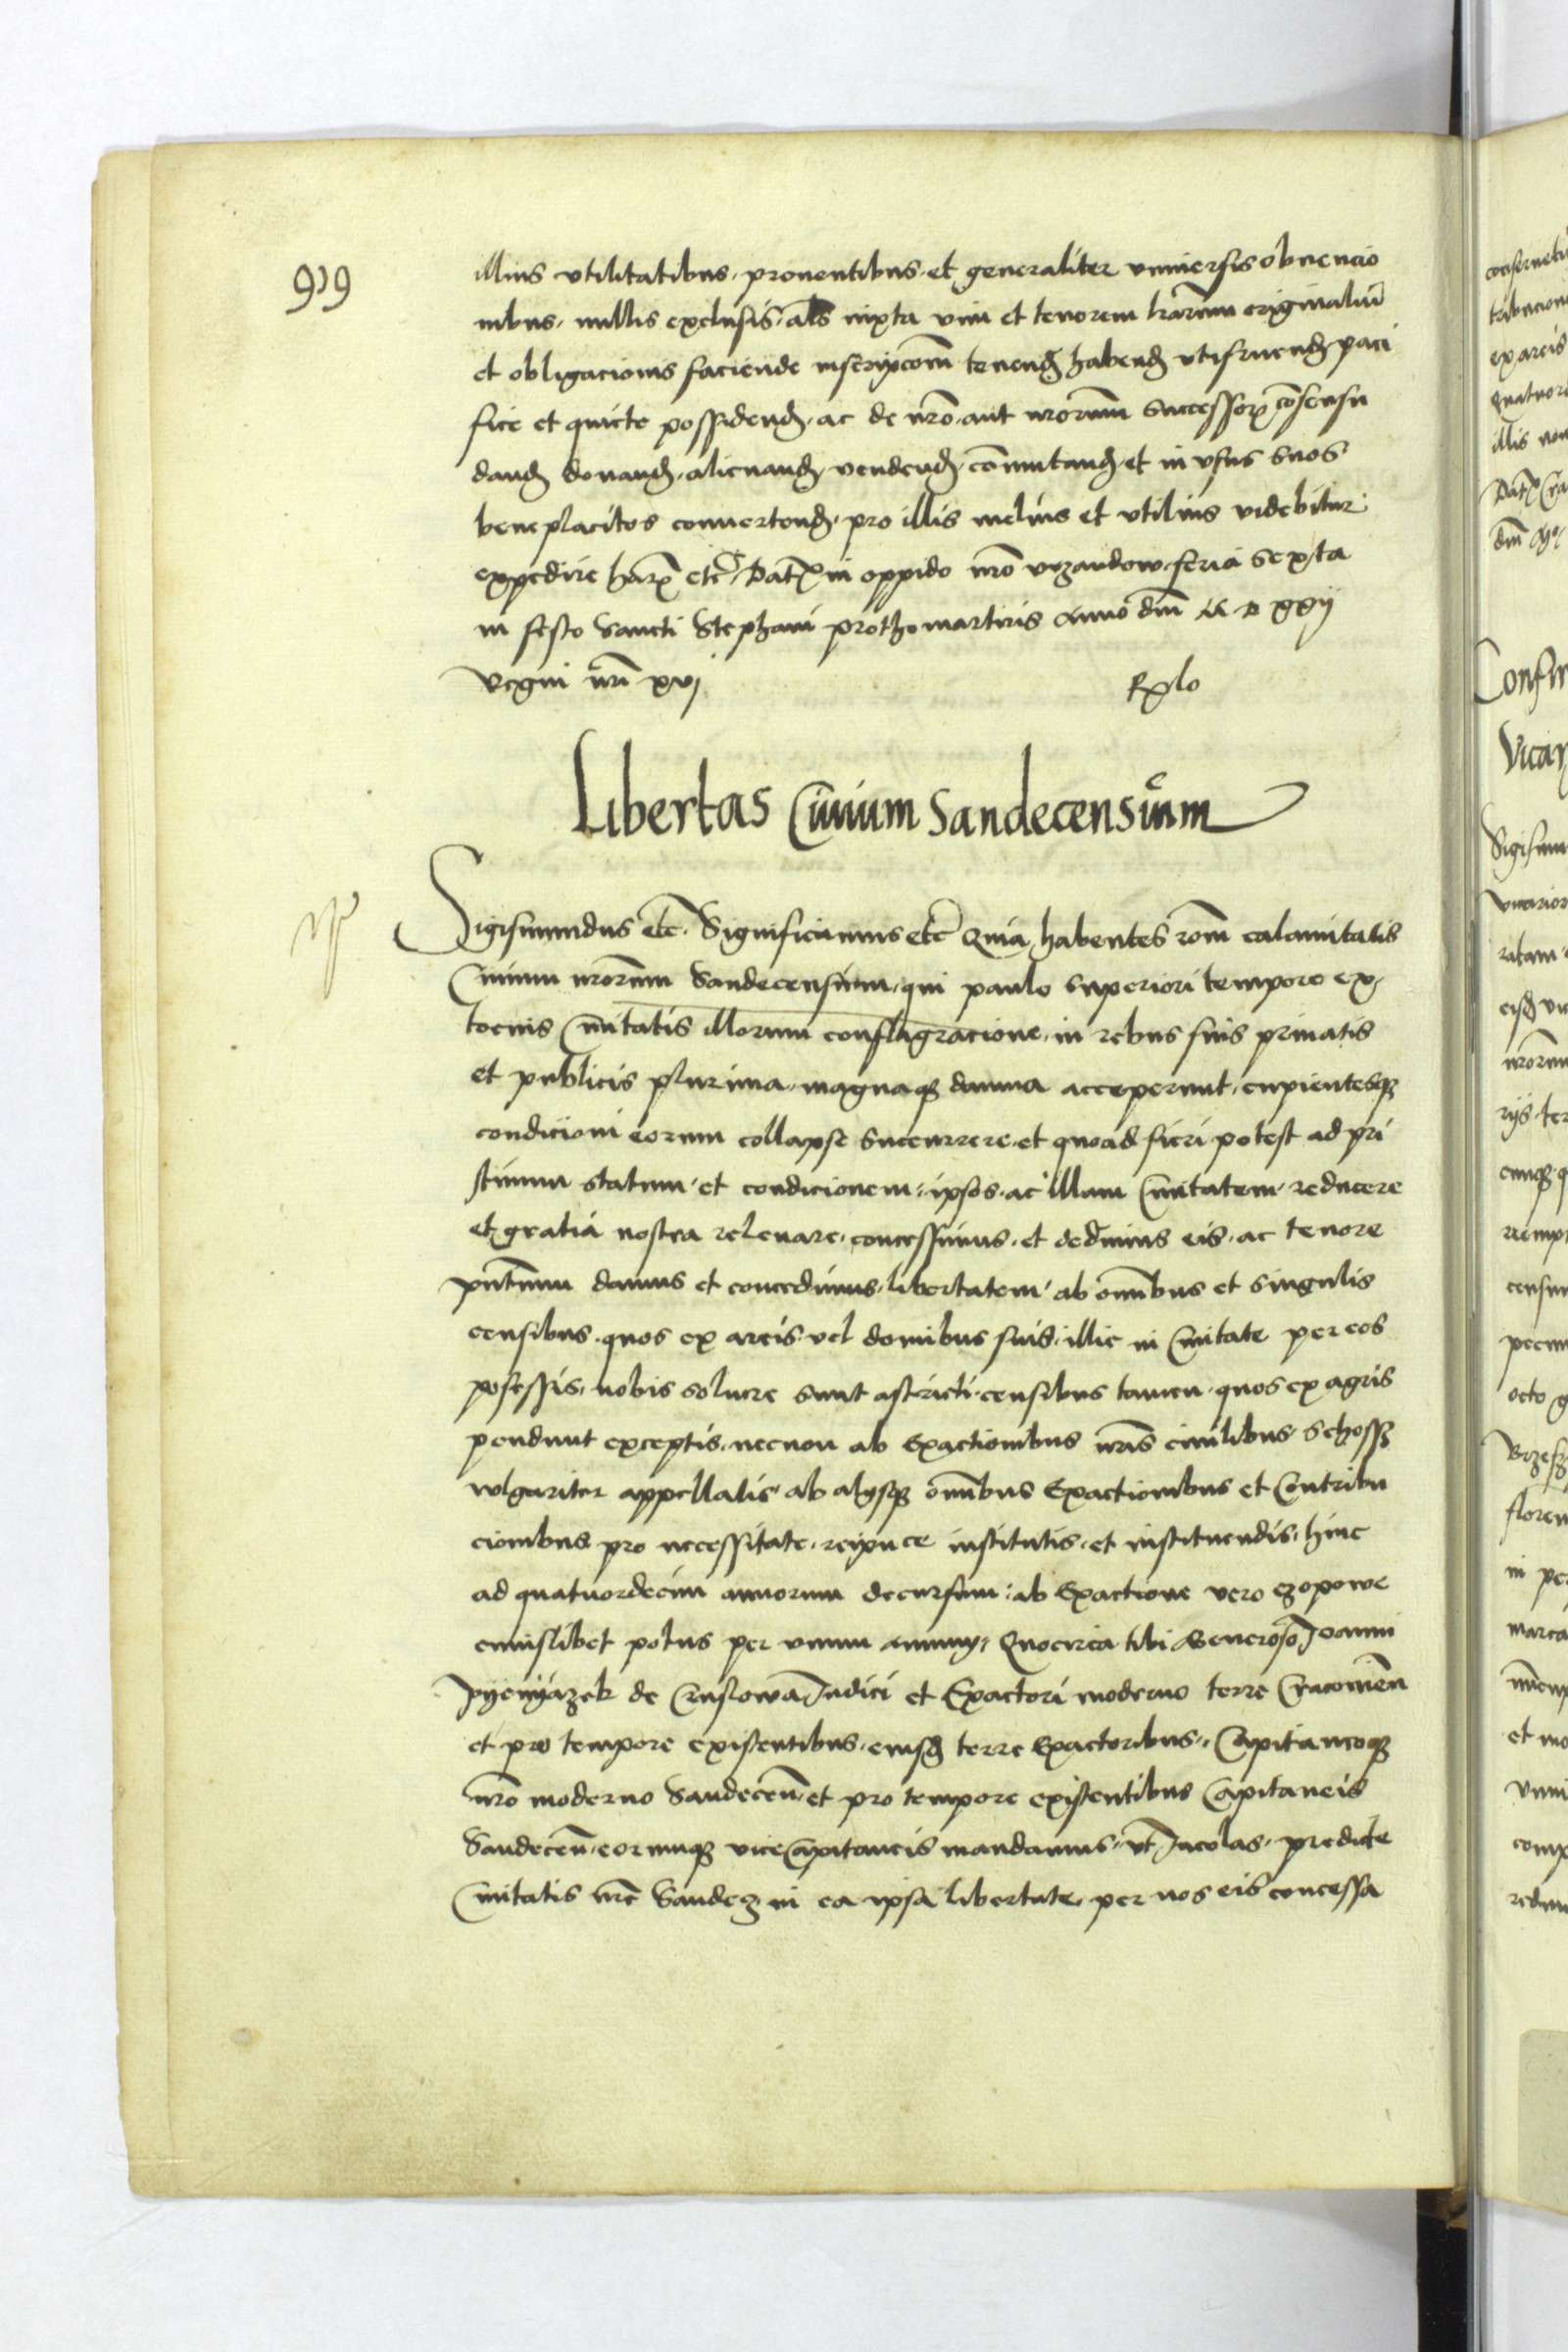 919
illius vtilitatibus, prouentibus, et generaliter vniuersis obuencio
nibus, nullis exclusis, als iuxta vim et tenorem lrarum originalium
et obligacionis faciende inscripcom tenend habend vtifruend paci
fice et quiete possidend, ac de nro aut nrorum successor consensu
dand donand, alienand, vendend, comutand, et in vsus suos
beneplacitos conuertend, pro illis melius et vtilius videbitur
expedire har etc Dat in oppido nro feria sexta
in festo Sancti Stephani prothomartiris Anno dni M D xxij
Regni nri xvj Rxlo
Libertas Ciuium Sandecensium
Sigismundus etc. Significamus etc Quia habentes rom calamitatis
Ciuium nrorum Sandecensium, qui paulo superiori tempore ex
Ciuitatis illorum conflagracione, in rebus suis priuatis
et publicis plurima, magnaq damna acceperunt, cupientesq
condicioni eorum collapse succurrere, et quoad fieri potest ad pri
stinum statum, et condicionem, ipsos, ac illam Ciuitatem, reducere
et gratia nostra releuare, concessimus, et dedimus eis, ac tenore
pntium damus et concedimus, libertatem, ab omnibus et singulis
censibus, quos ex areis vel domibus suis, illic in Ciuitate per eos
possessis, nobis soluere sunt astricti, censibus tamen, quos ex agris
pendunt exceptis, necnon ab Exactionibus nris ciuilibus Schossz
wlgariter appellatis, ab alijsq omnibus Exactionibus et Contribu
cionibus pro necessitate, reipuce institutis, et instituendis, hinc
ad quatuordecim annorum decursum, ab Exactione vero czopowe
cuiuslibet potus per vnum annum, Quocirca tibi Generoso Joanni
Pyenyazek de Cruslowa Judici et Exactori moderno terre Cracouien
et pro tempore existentibus, eiusd terre Exactoribus, Capitaneoq
nro moderno Sandecen, et pro tempore existentibus Capitaneis
Sandecen, eorumq viceCapitaneis mandamus, vt Incolas, predicte
Ciuitatis nre Sandecz in ea ipsa libertate, per nos eis concessa